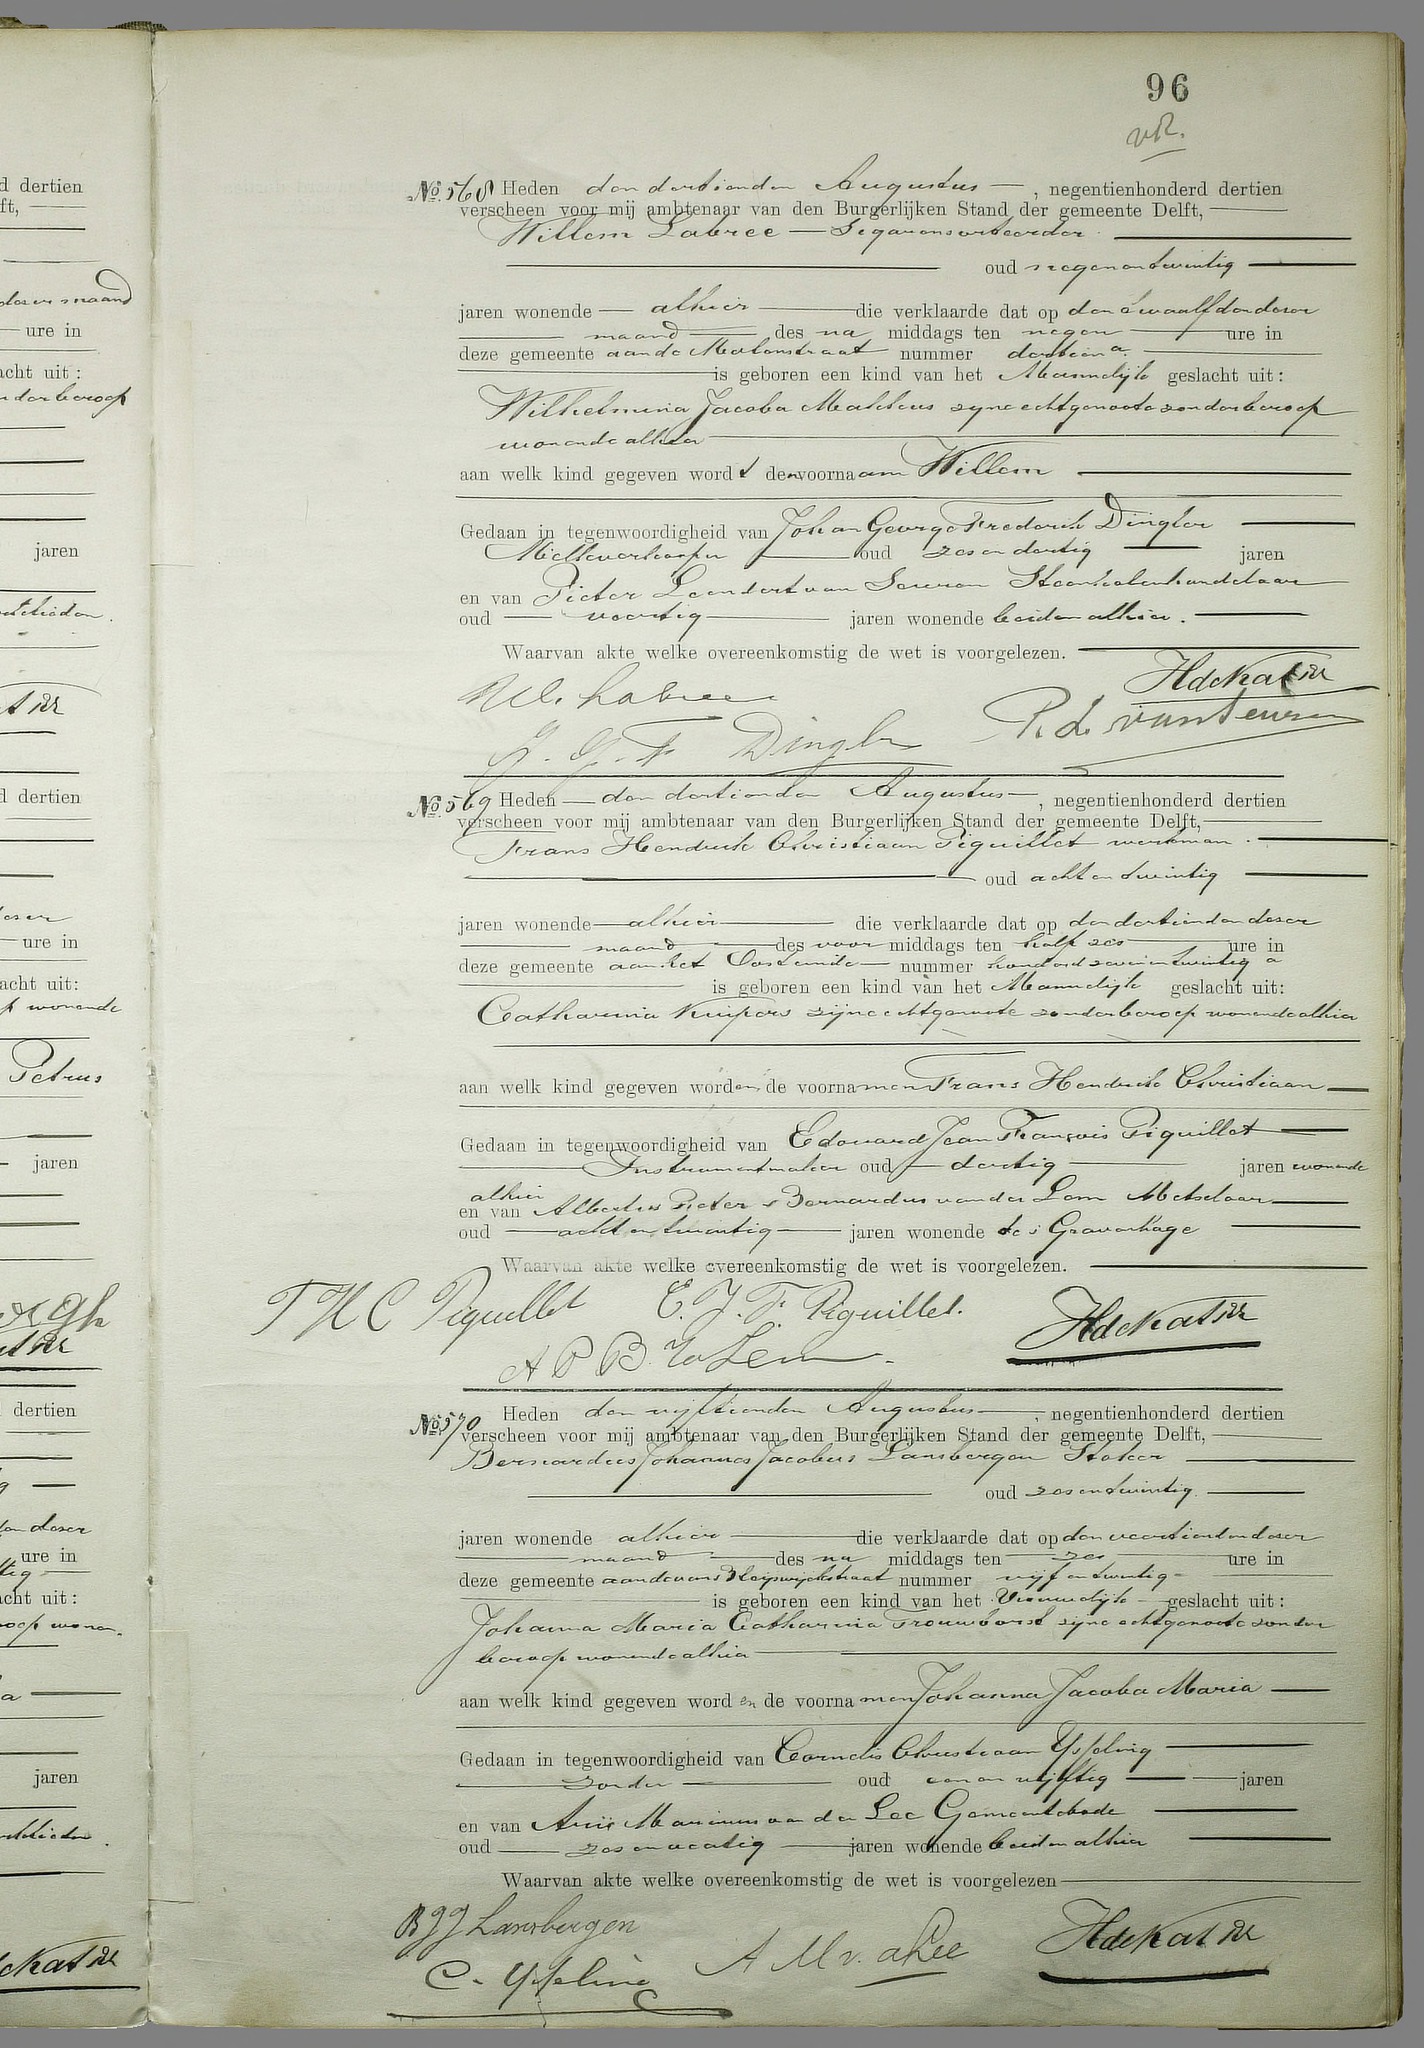 96
vR.
No. 568 Heden den dertienden Augustus, negentienhonderd dertien
verscheen voor mij ambtenaar van den Burgerlijken Stand der gemeente Delft,
Willem Labree Segarensorteerder
oud negenentwintig
jaren wonende alhier die verklaarde dat op den twaalfden dezer
maand des na middags ten negen ure in
deze gemeente aan de Meelenstraat nummer dertien a.
is geboren een kind van het Mannelijk geslacht uit:
Wilhelmina Jacoba zijne echtgenoote zonder beroep
wonende alhier
aan welk kind gegeven wordt den voornaam Willem
Gedaan in tegenwoordigheid van Johan George Frederik Dingler
Melkverkooper oud zesendertig jaren
en van Pieter Leendert van Leuven Steenkolenhandelaar
oud veertig jaren wonende beiden alhier.
Waarvan akte welke overeenkomstig de wet is voorgelezen.
W. Labree HdeKat
J. G. F. Dingler P. L. van Leuven
No. 569 Heden den dertienden Augustus, negentienhonderd dertien
verscheen voor mij ambtenaar van den Burgerlijken Stand der gemeente Delft,
Frans Hendrik Christiaan Piguillet werkman.
oud achtentwintig
jaren wonende alhier die verklaarde dat op den dertienden dezer
maand des voor middags ten half zes ure in
deze gemeente aan het Oosteinde nummer honderd zevenentwintig a
is geboren een kind van het Mannelijk geslacht uit:
Catharina Kuipers zijne echtgenoote zonder beroep wonende alhier
aan welk kind gegeven worden de voornamen Frans Hendrik Christiaan
Gedaan in tegenwoordigheid van Edouard Jean François Piguillet
Instrumentmaker oud dertig jaren wonende
alhier
en van Albertus Pieter Bernardus van der Lem Metselaar
oud achtentwintig jaren wonende te 's Gravenhage
Waarvan akte welke overeenkomstig de wet is voorgelezen.
F H C Piguillet E. J. F. Piguillet. HdeKat
A P B. v d Lem
No. 570 Heden den vijftienden Augustus, negentienhonderd dertien
verscheen voor mij ambtenaar van den Burgerlijken Stand der gemeente Delft,
Bernardus Johannes Jacobus Lansbergen Stoker
oud zesentwintig
jaren wonende alhier die verklaarde dat op den veertienden dezer
maand des na middags ten zes ure in
deze gemeente aan de van Slingelandtstraat nummer vijfentwintig
is geboren een kind van het Vrouwelijk geslacht uit:
Johanna Maria Catharina Trouwborst zijne echtgenoote zonder
beroep wonende alhier
aan welk kind gegeven worden de voornamen Johanna Jacoba Maria
Gedaan in tegenwoordigheid van Cornelis Christiaan Ysseling
zonder oud een en vijftig jaren
en van Arie Marinus van der Lee Gemeentebode
oud zesenveertig jaren wonende beiden alhier
Waarvan akte welke overeenkomstig de wet is voorgelezen
B J J Lansbergen
C. Ysseling A M v. d Lee HdeKat